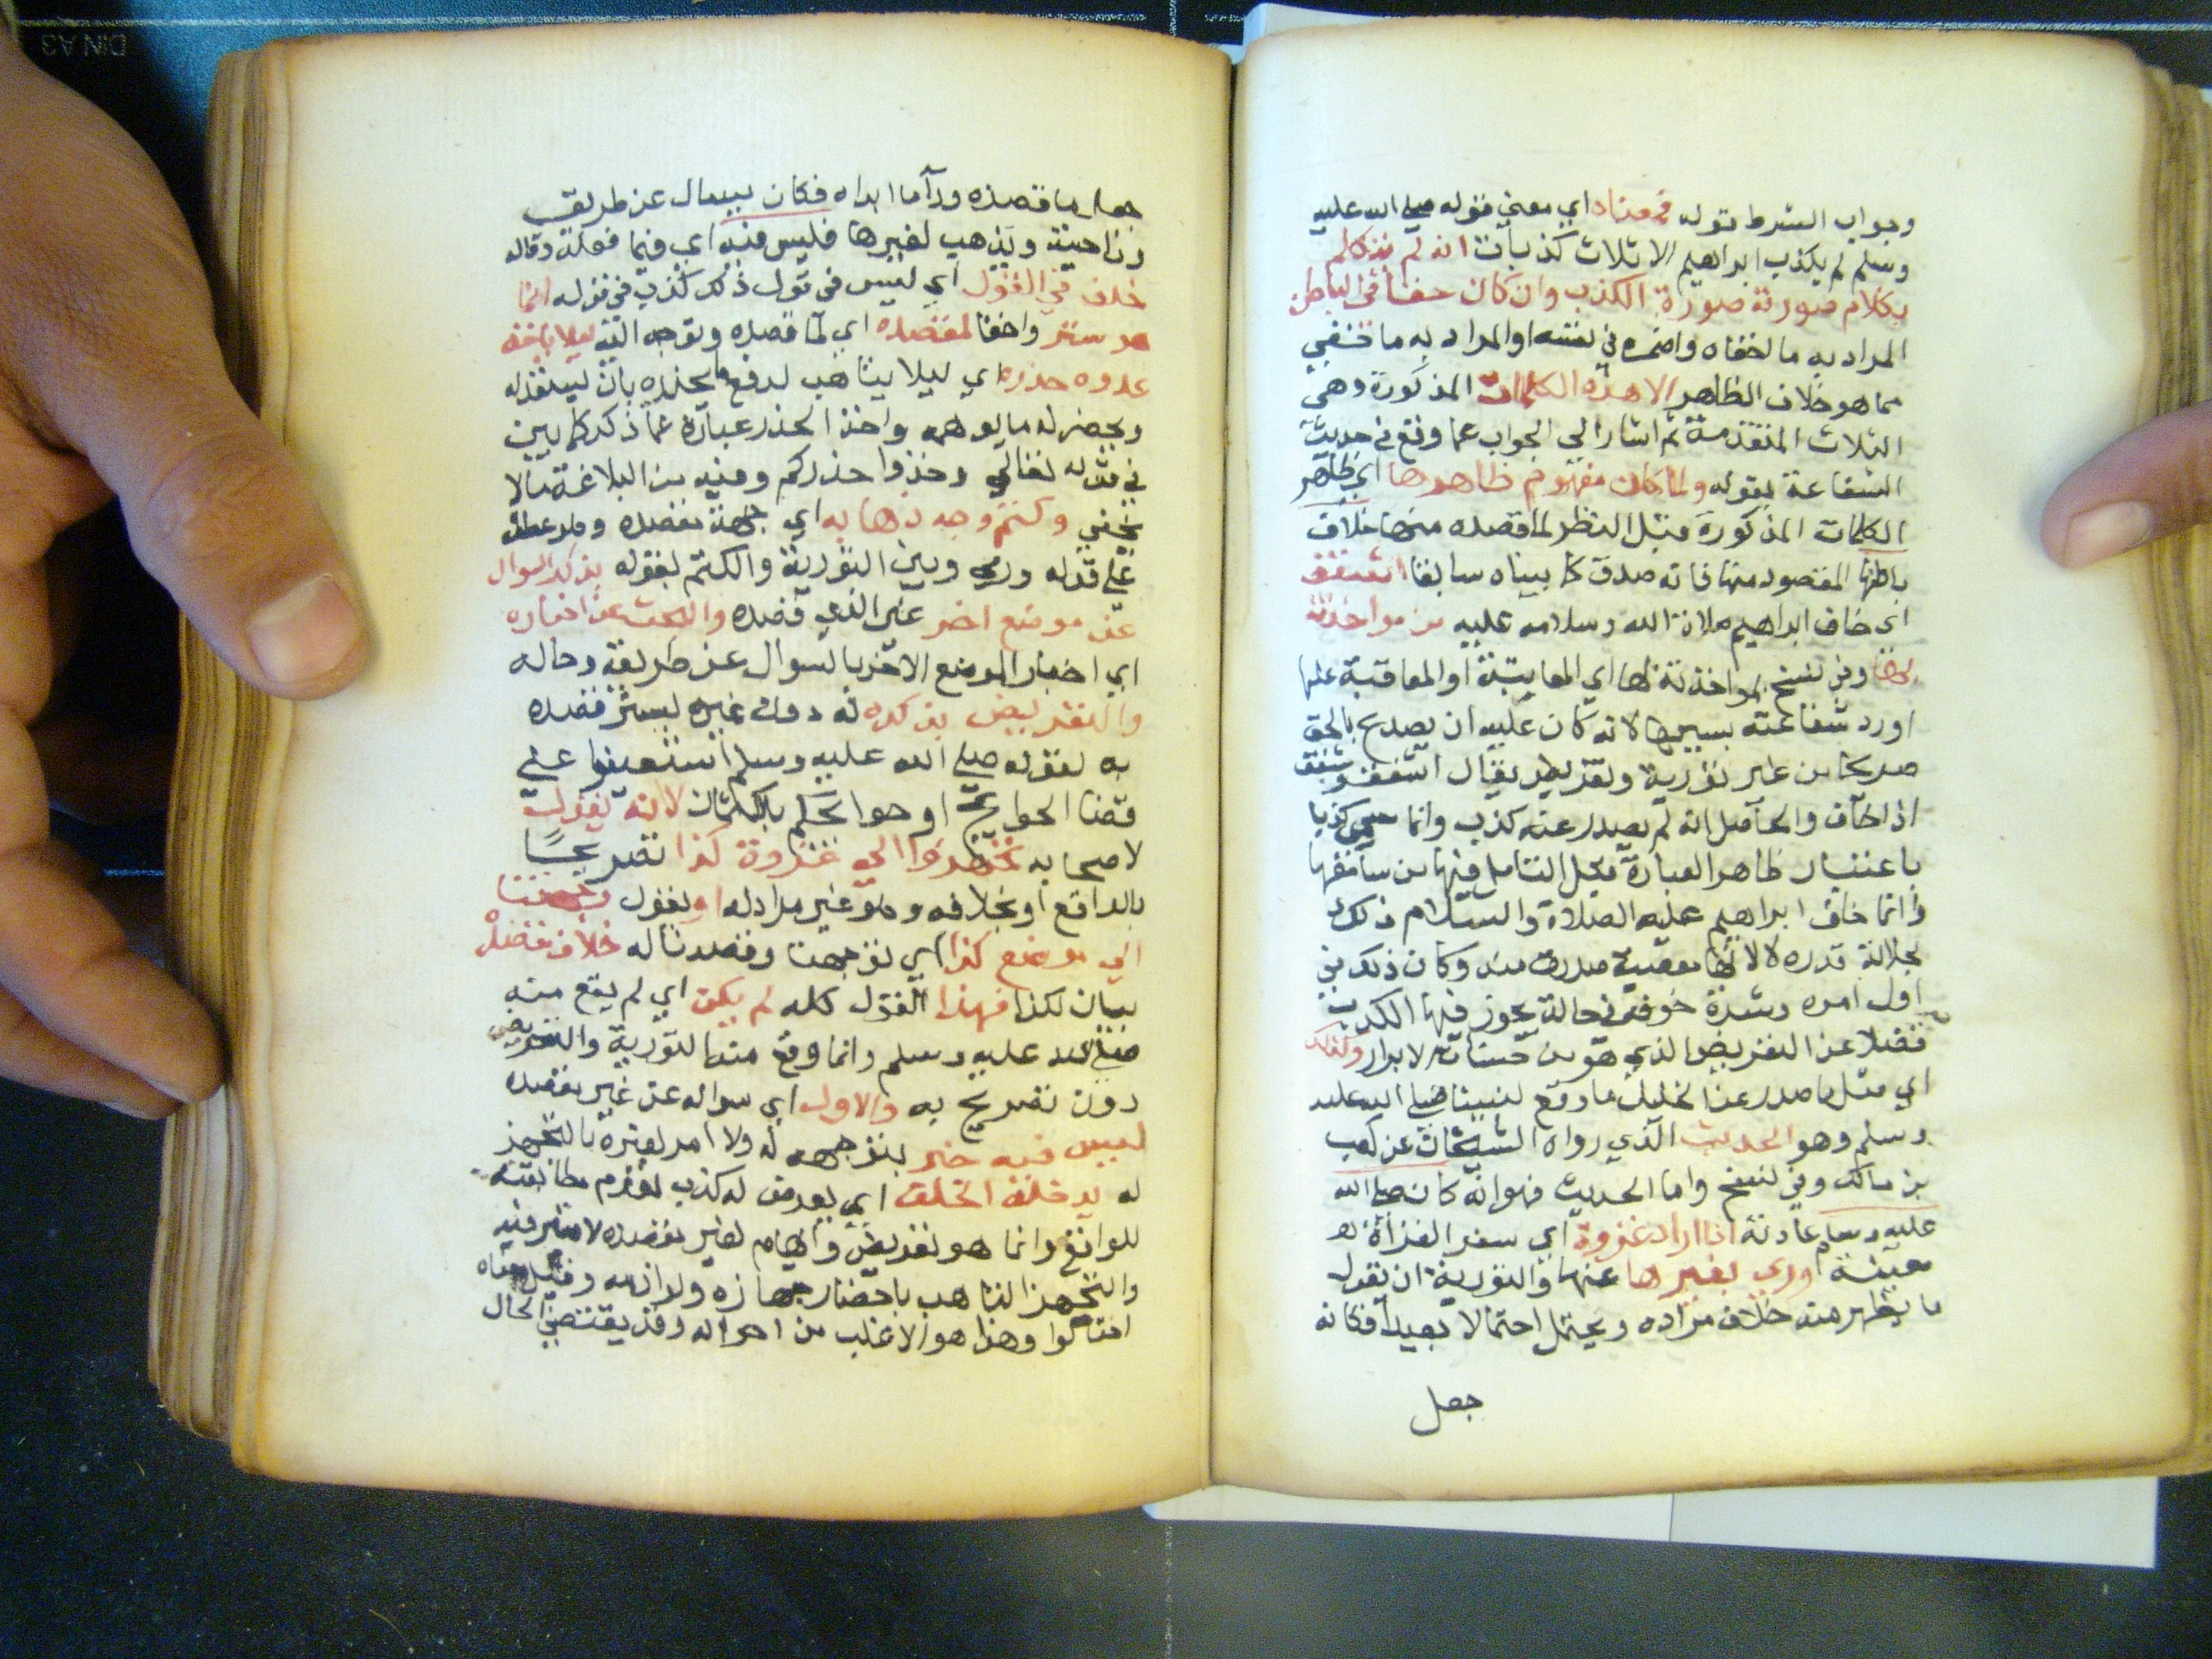 وجواب الشرط قوله فمعناه اي معني قوله صلي الله عليه
وسلم لم يكذب ابراهيم الا ثلاث كذبات انه لم يتكلم
بكلام صورته صورة الكذب وان كان حقا في الباطن
المراد به ما اخفاه واضمره في نفسه او المراد به ما خفي
مما هو خلاف الظاهر الا هذه الكلمات المذكورة وهي
الثلاث المتقدمة ثم اشار الي الجواب عما وقع في حديث
الشفاعة بقوله ولما كان مفهوم ظاهرها اي ظاهر
الكلمات المذكورة قبل النظر لما قصده منها خلاف
باطنها المقصود منها فانه صدق كما بيناه سابقا اشفق
اي خاف ابراهيم صلاة الله وسلامه عليه من مواخذته
بها وفي نسخ لمواخذته بها اي المعاتبة او المعاقبة عليها
اورد شفاعته بسببها لانه كان عليه ان يصدع بالحق
صريحا من غير تورية وتعريض يقال اشفق وشفق
اذا خاف والحاصل انه لم يصدر عنه كذب وانما سمي كذبا
باعتبار ظاهر العبارة قبل التامل فيها من سامعها
وانما خاف ابراهيم عليه الصلاة والسلام ذلك
لجلالة قدره لا لانها معصية صدرت منه وكان ذلك في
اول امره وشدة خوفه في حالة يجوز فيها الكذب
فضلا عن التعريض الذي هو من حسنات الابرار وكذلك
اي مثل ما صدر عن الخليل ما وقع لنبينا صلي الله عليه
وسلم وهو الحديث الذي رواه الشيخان عن كعب
بن مالك وفي نسخ واما الحديث فهو انه كان صلي الله
عليه وسلم عادته اذا اراد غزوة اي سفر الغزاة
معينة وري بغيرها عنها والتورية ان يقول
ما يظهر منه خلاف مراده ويحتمل احتمالا بعيدا فكانه
جعل
جعل ما قصده ورآ ما ابداه فكان يسال عن طريق
وناحية ويذهب لغيرها فليس فيه اي فيما فعله وقاله
خلف في القول اي ليس في قول ذلك كذب في قوله انما
هو ستر واخفا لمقصده اي لما قصده وتوجه اليه ليلا ياخذ
عدوه حذره اي ليلا يتاهب لدفع ما يحذره بان يستعد له
ويحضر له ما يوهمه واخذ الحذر عبارة عما ذكر كما بين
في قوله تعالي وخذوا حذركم وفيه من البلاغة ما لا
يخفي وكتم وجه ذهابه اي جهة مقصده وهو عطف
علي قوله وري وبين التورية والكتم بقوله بذكر السوال
عن موضع اخر غير الذي قصده والبحث عن اخباره
اي اخبار الموضع الاخر بالسوال عن طريقه وحاله
والتعريض بذكره له دون غيره ليستر قصده
به لقوله صلي الله عليه وسلم استعينوا علي
قضا الحوائج او حوائجكم بالكتمان لا انه يقول
لاصحابه تجهزوا الي غزوة كذا تصريحا
بالواقع او بخلافه وهو غير مراد له او يقول وجهتنا
الي موضع كذا اي توجهنا وقصدنا له خلاف مقصده
بيان لكذا فهذا القول كله لم يكن اي لم يقع منه
صلي الله عليه وسلم وانما وقع منه التورية والتعريض
دون تصريح به والاول اي سواله عن غير مقصده
ليس فيه خبر بتوجهه له ولا امر لغيره بالتجهز
له يدخله الخلف اي يعرض له كذب لعدم مطابقته
للواقع وانما هو تعريض وايهام لغير مقصده لا ضير فيه
والتجهز التاهب باحضار جهازه ولوازمه وقيل معناه
احتالوا وهذا هو الاغلب من احواله وقد يقتضي الحال